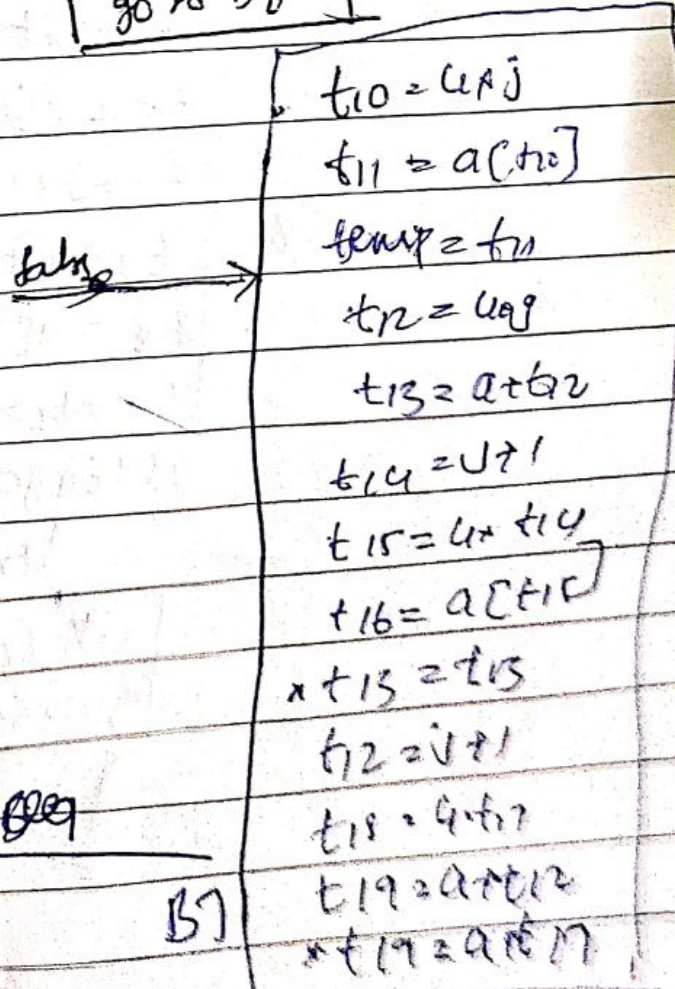 go to
t10 = 4*j
t11 = a[t10]
false
temp = t11
t12 = 4*j
t13 = a+t12
t14 = j+1
t15 = 4* t14
t16 = a[t15]
*t13 = t13
t12 = j+1
t18 = 4*t17
t19 = a+t12
B7
*t19 =